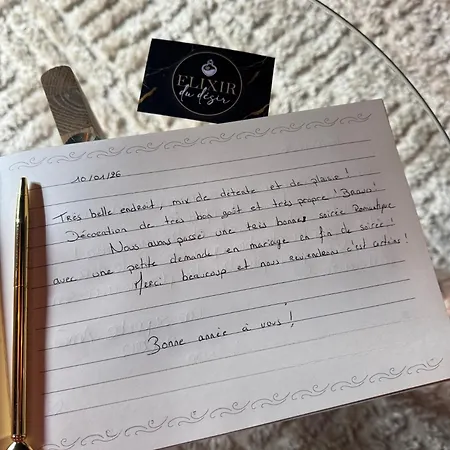 ELIXIR
du désir
10/01/26
Très belle endroit, mix de détente et de plaisir !
Décoration de très bon goût et très propre ! Bravo !
Nous avons passé une très bonne soirée Romantique
avec une petite demande en mariage en fin de soirée !
Merci beaucoup et nous reviendrons c'est certains !
Bonne année à vous !